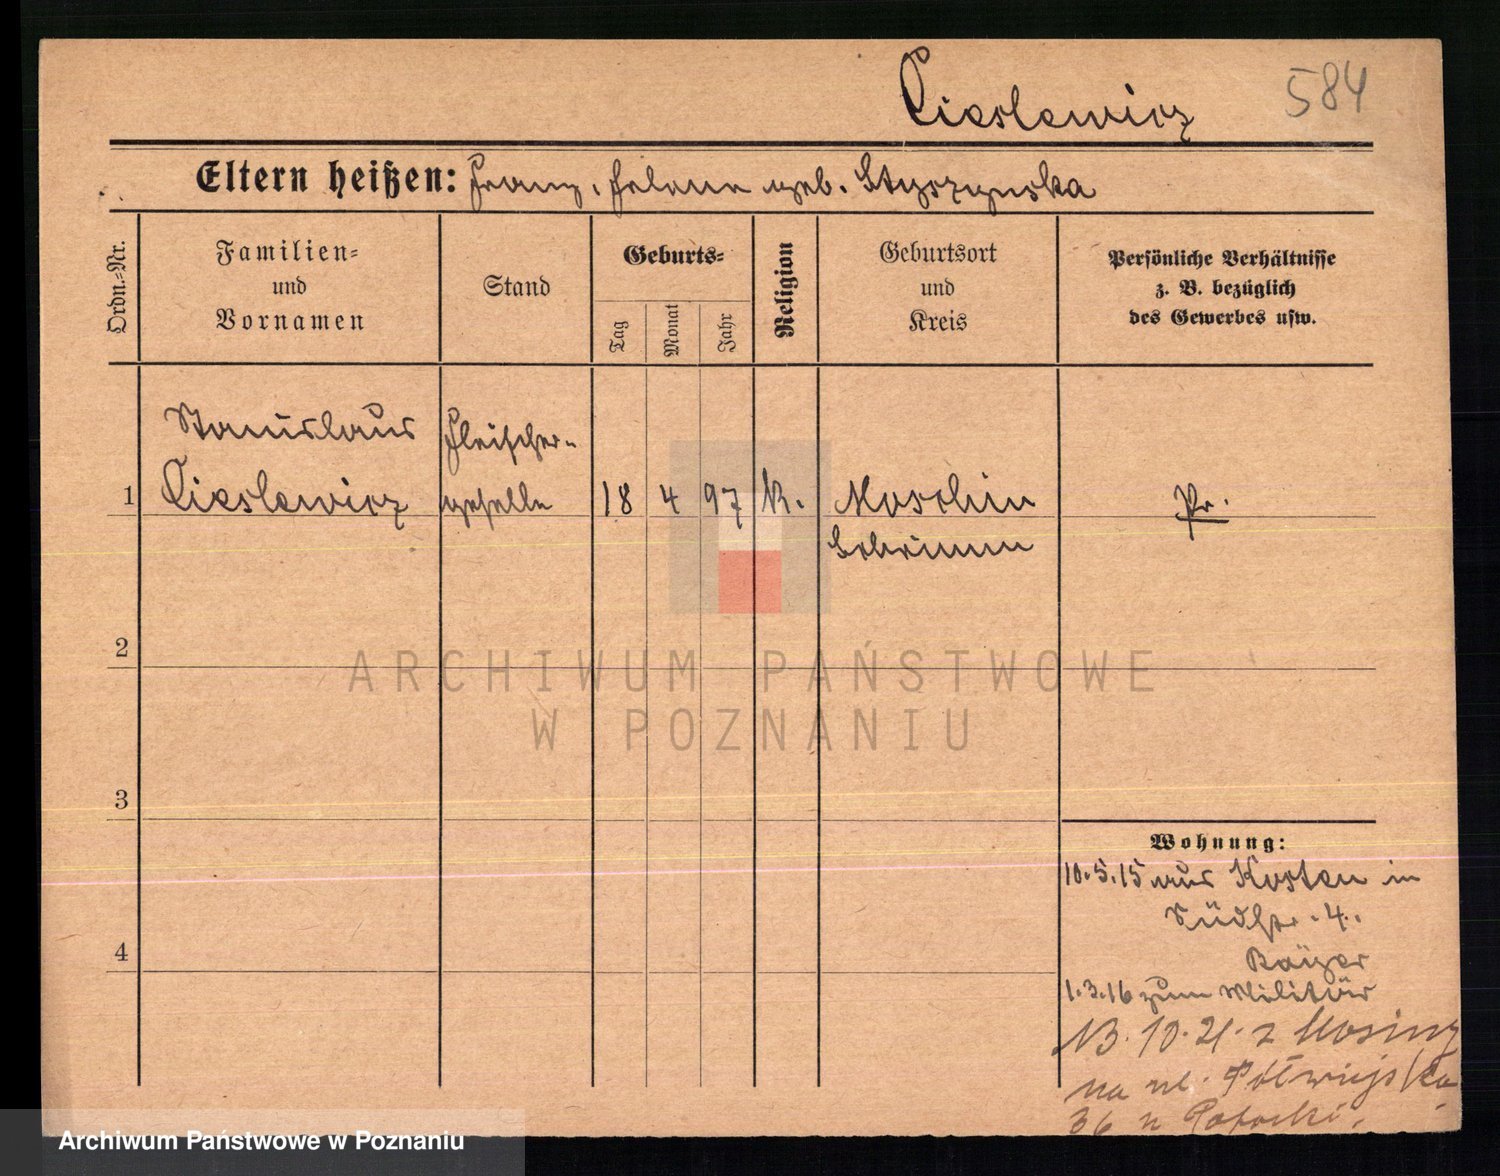 Cieslewicz 584
Eltern heißen: Franz, Helene geb. Styszynska
Ordn.-Nr.
Familien-
und
Vornamen
Stand
Geburts-
Tag
Monat
Jahr
Religion
Geburtsort
und
Kreis
Persönliche Verhältnisse
z. B. bezüglich
des Gewerbes usw.
Stanislaus Fleischer-
1 Cieslewicz geselle 18 4 97 K. Moschin Pr.
Schrimm
2
ARCHIWUM PAŃSTWOWE
W POZNANIU
3
Wohnung:
10.5.15 aus Kosten in
Südstr. 4.
4
1.3.16 zum Militär
10. 21. z Mosiny
na ul. Półwiejska
36 u
Archiwum Państwowe w Poznaniu